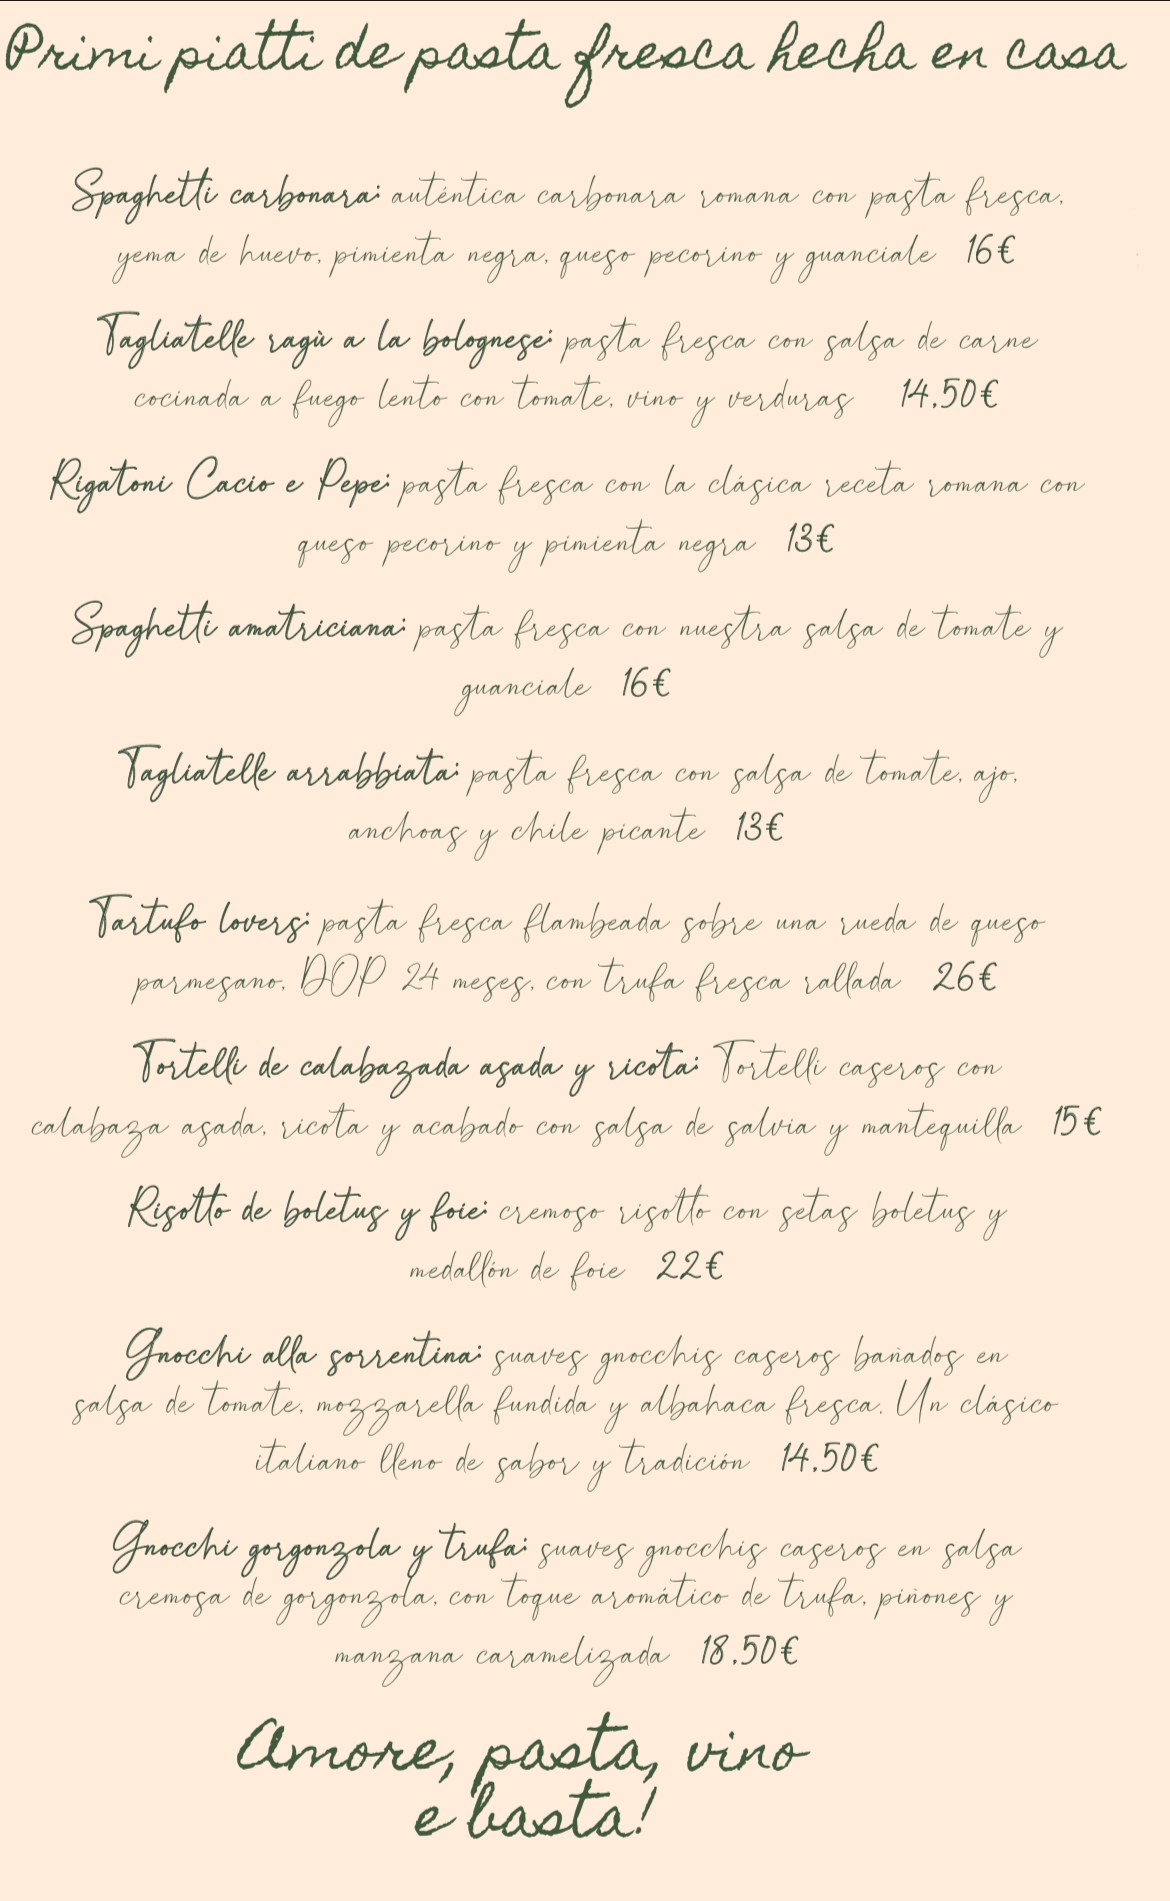 Primi piatti de pasta fresca hecha en casa
Spaghetti carbonara: auténtica carbonara romana con pasta fresca,
yema de huevo, pimienta negra, queso pecorino y guanciale 16€
Tagliatelle ragù a la bolognese: pasta fresca con salsa de carne
cocinada a fuego lento con tomate, vino y verduras 14,50€
Rigatoni Cacio e Pepe: pasta fresca con la clásica receta romana con
queso pecorino y pimienta negra 13€
Spaghetti amatriciana: pasta fresca con nuestra salsa de tomate y
guanciale 16€
Tagliatelle arrabbiata: pasta fresca con salsa de tomate, ajo,
anchoas y chile picante 13€
Tartufo lovers: pasta fresca flambeada sobre una rueda de queso
parmesano, DOP 24 meses, con trufa fresca rallada 26€
Tortelli de calabazada asada y ricota: Tortelli caseros con
calabaza asada, ricota y acabado con salsa de salvia y mantequilla 15€
Risotto de boletus y foie: cremoso risotto con setas boletus y
medallón de foie 22€
Gnocchi alla sorrentina: suaves gnocchis caseros bañados en
salsa de tomate, mozzarella fundida y albahaca fresca. Un clásico
italiano lleno de sabor y tradición 14,50€
Gnocchi gorgonzola y trufa: suaves gnocchis caseros en salsa
cremosa de gorgonzola, con toque aromático de trufa, piñones y
manzana caramelizada 18,50€
Amore, pasta, vino
e basta!